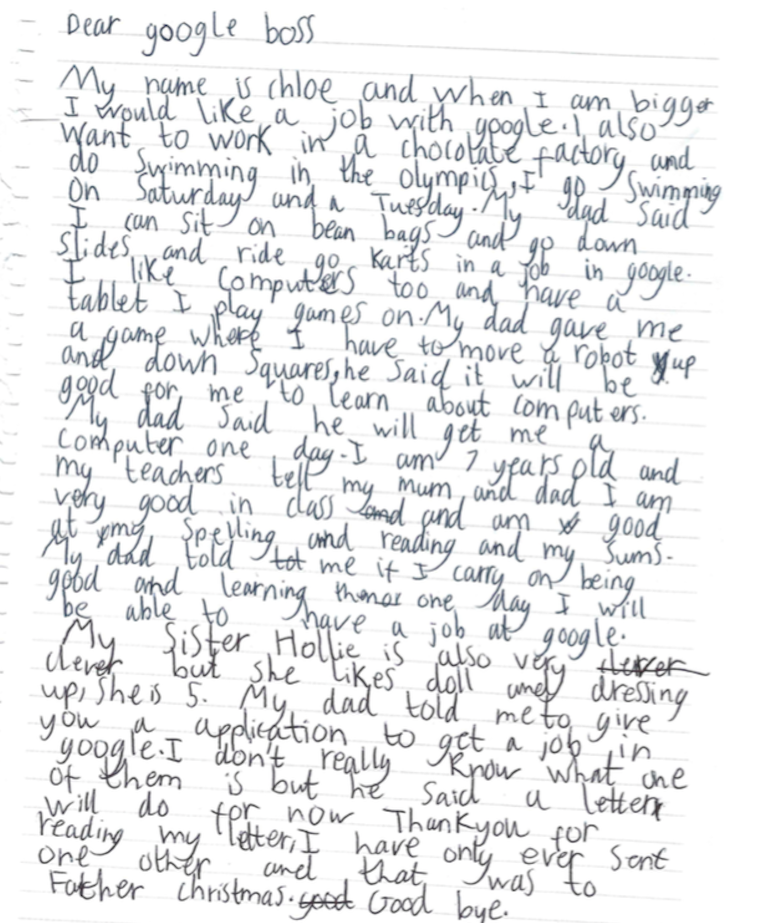 Dear google boss
My name is chloe and when I am bigger
I would like a job with google. I also
want to work in a chocolate factory and
do swimming in the olympics, I go Swimming
on Saturday and a Tuesday. My dad said
I can sit on bean bags and go down
slides and ride go karts in a job in google.
I like computers too and have a
tablet I play games on. My dad gave me
a game where I have to move a robot up
and down squares, he said it will be
good for me to learn about computers.
My dad said he will get me a
computer one day. I am 7 years old and
my teachers tell my mum and dad I am
very good in class and and am good
at my spelling and reading and my sums.
My dad told tot me if I carry on being
good and learning one day I will
be able to have a job at google.
My sister Hollie is also very clever
clever but she likes doll and dressing
up, she is 5. My dad told me to give
you a application to get a job in
google. I don't really know what one
of them is but he said a letter
will do for now Thankyou for
reading my letter, I have only ever sent
one other and that was to
Father christmas. good Good bye.